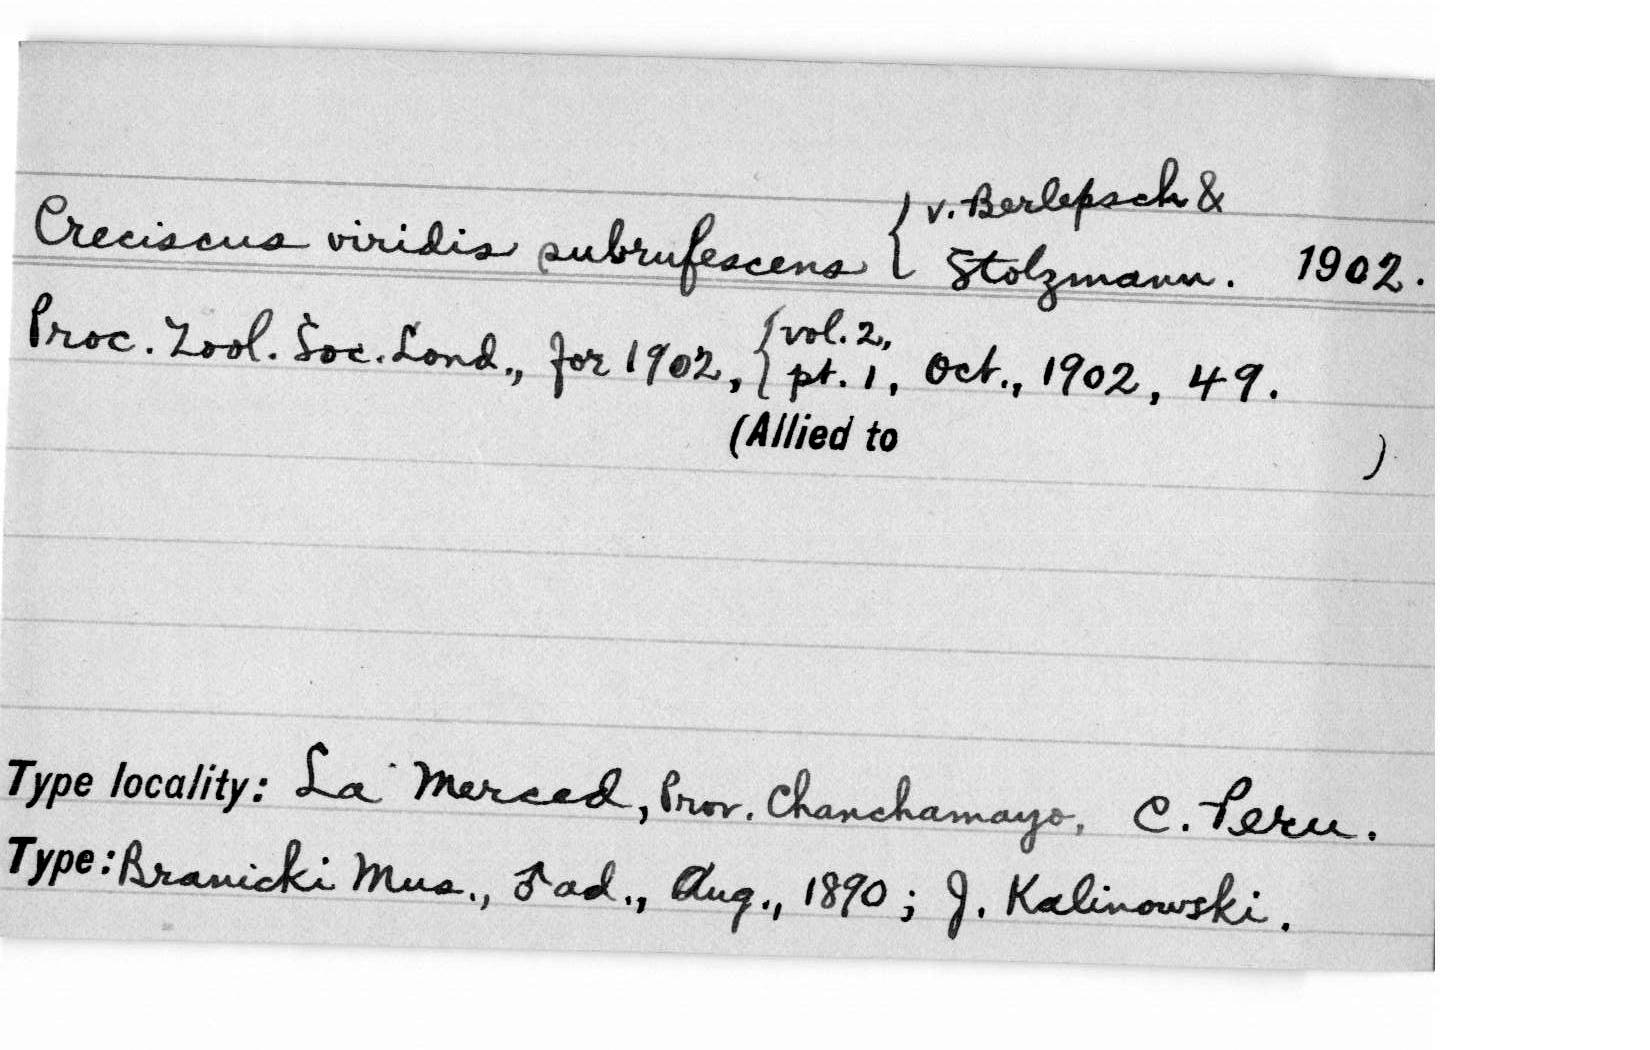 Creciscus viridis subrufescens { v. Berlepsch & Stolzmann. 1902.
Proc. Zool. Soc. Lond., for 1902, { vol. 2, pt. 1, Oct., 1902, 49.
(Allied to )
Type locality: La Merced, Prov. Chanchamayo, C. Peru.
Type: Branicki Mus., ♂ ad., Aug., 1890; J. Kalinowski.